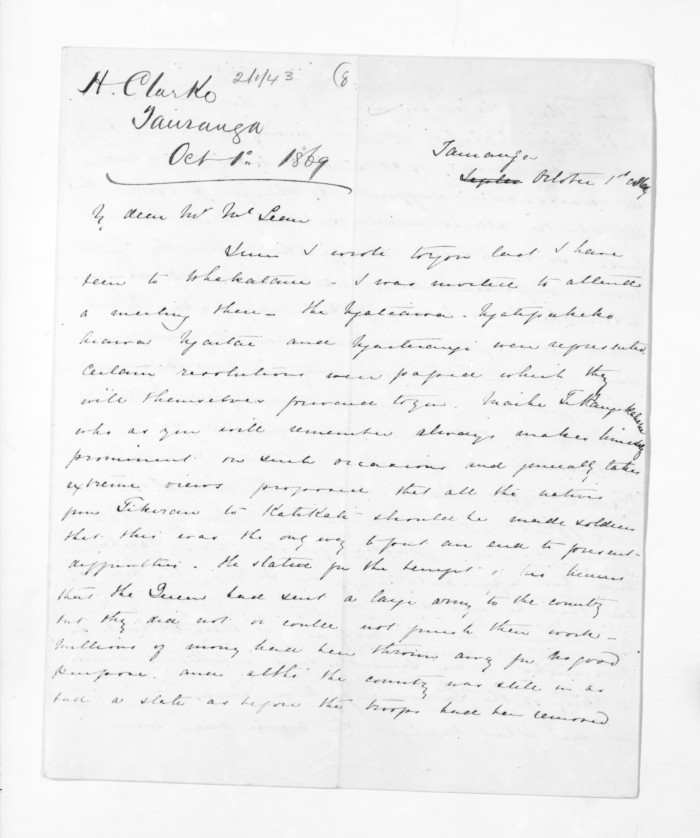 H. Clarke 2/1/43 (8
Tauranga
Oct 1st 1869
Tauranga
Septer October 1st 1869
My dear Mr McLean
Since I wrote to you last I have
been to Whakatane - I was invited to attend
a meeting there - the Ngatiawa - Ngatipukeko
Arawa Ngaitai and Ngaiterangi were represented
Certain resolutions were passed which they
will themselves forward to you.
who as you will remember always makes himself
prominent on such occasions and generally takes
extreme views proposed that all the natives
from to Katikati should be made soldiers
that this was the only way to put an end to present
difficulties - He stated for the benefit of his hearers
that the Queen had sent a large army to the country
but they did not or could not finish their work -
Millions of money had been thrown away for no good
purpose. and altho' the country was still in as
bad a state as before the troops had been removed